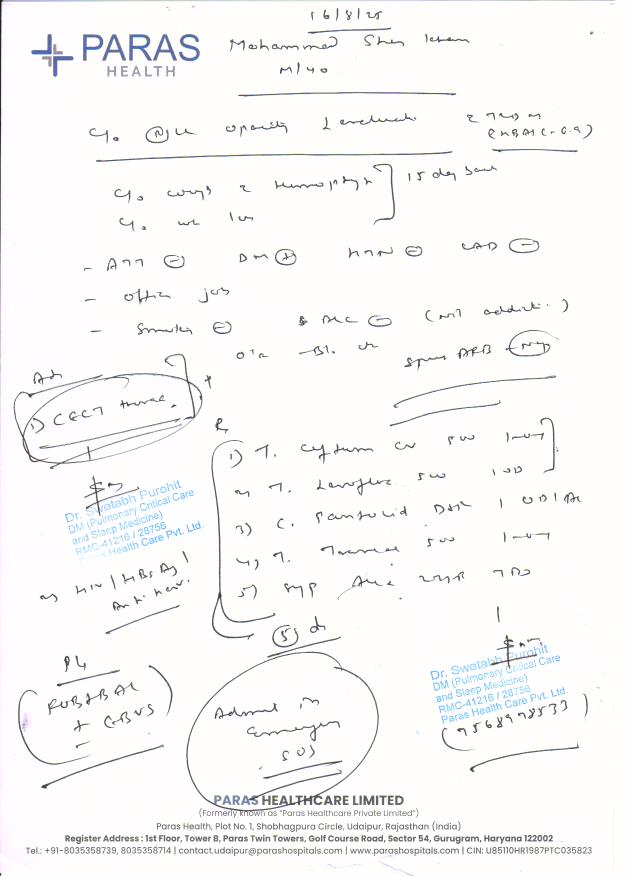 16/8/25
PARAS
HEALTH
Mohammad Sher Khan
M/40
C/o opacity I evaluate T2DM
(HBA1C - 6.9)
C/o cough hemoptysis 15 day
C/o wt loss
- ATT ⊖ DM ⊕ HTN ⊖ CAD ⊖
- office job
- Smoker ⊖ ALC ⊖ (not addict.)
Sputum AFB
Adv
1) CECT thorax
Rx
1) T. Ceftum CV 500 1-0-1
2) T. Levoflox 500 1 OD
3) C. Pantocid DSR 1 OD/AC
4) T. 500 1-0-1
5) Syp TDS
⑤ d
Dr. Swetabh Purohit
DM (Pulmonary Critical Care
and Sleep Medicine)
RMC-41216 / 28756
Paras Health Care Pvt. Ltd.
2) HIV / HBsAg /
Anti HCV
Dr. Swetabh Purohit
DM (Pulmonary Critical Care
and Sleep Medicine)
RMC-41216 / 28756
Paras Health Care Pvt. Ltd.
(9568978533)
BAL
+ EBUS
Admit in
Emergency
SOS
PARAS HEALTHCARE LIMITED
(Formerly known as "Paras Healthcare Private Limited")
Paras Health, Plot No. 1, Shobhagpura Circle, Udaipur, Rajasthan (India)
Register Address : 1st Floor, Tower B, Paras Twin Towers, Golf Course Road, Sector 54, Gurugram, Haryana 122002
Tel.: +91-8035358739, 8035358714 | contact.udaipur@parashospitals.com | www.parashospitals.com | CIN: U85110HR1987PTC035823